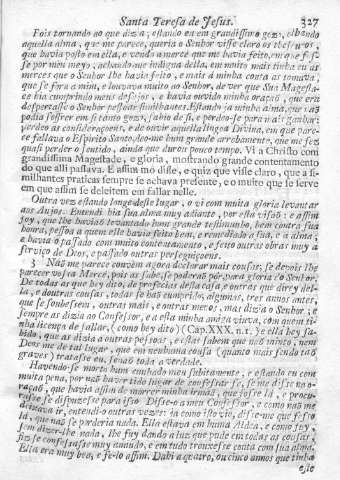 Santa Teresa de Jesus. 327
Fois tornando ao que dizia; estando eu em grandissimo gozo, olhando
aquella alma, que me parece, queria o Senhor visse claro os thesouros,
que havia posto em ella, e vendo a mercê que me havia feito, em que fosse
se por meu meyo, achando-me indigna della, em muito mais tinha eu as
merces que o Senhor lhe havia feito, e mais á minha conta as tomava,
que se fora a mim, e louvava muito ao Senhor, de ver que Sua Magesta-
de hia cumprindo meus desejos, e havia ouvido minha oraçaõ, que era
despertasse o Senhor pessoas similhantes. Estando ja minha alma, que naõ
podia soffrer em si tanto gozo, sahio de si, e perdeo-se para mais ganhar:
perdeo as consideraçoens, e de ouvir aquella lingoa Divina, em que pare-
ce fallava o Espirito Santo, deo-me hum grande arrobamento, que me fez
quasi perder o sentido, ainda que durou pouco tempo. Vi a Christo com
grandissima Magestade, e gloria, mostrando grande contentamento
do que alli passava. E assim mo disse, e quiz que visse claro, que a si-
milhantes praticas sempre se achava presente, e o muito que se serve
em que assim se deleitem em fallar nelle.
Outra vez estando longe deste lugar, o vi com muita gloria levantar
aos Anjos. Entendi hia sua alma muy adiante, por esta visaõ: e assim
foy, que lhe haviaõ levantado hum grande testimunho, bem contra sua
honra, pessoa a quem elle havia feito bem, e remediado a sua, e a alma;
e havia-o passado com muito contentamento, e feito outras obras muy a
serviço de Deos, e passado outras perseguiçoens.
3 Naõ me parece convém agora declarar mais cousas; se depois lhe
parecer vossa Mercê, pois as sabe, se poderaõ pôr, para gloria do Senhor.
De todas as que hey dito, de profecias desta casa, e outras que direy del-
la, e doutras cousas, todas se haõ cumprido, algumas, tres annos antes
que se soubessem, outras mais, e outras menos, mas dizia o Senhor; e
sempre as dizia ao Confessor, e a esta minha amiga viuva, com quem ti-
nha licença de fallar, (como hey dito) (Cap. XXX. n. 1.) e ella hey sa-
bido, que as dizia a outras pessoas, e estas sabem que naõ minto, nem
Deos me dê tal lugar, que em nenhuma cousa (quanto mais sendo taõ
graves) tratasse eu, senaõ toda a verdade.
Havendo-se morto hum cunhado meu subitamente, e estando eu com
muita pena, por naõ haver tido lugar de confessar-se, se me disse na o-
raçaõ, que havia assim de morrer minha irmaã, que fosse lá, e procu-
rasse se dispuzesse para isso. Disse-o a meu Confessor, e como naõ me
deixava ir, entendi-o outras vezes: ja como isto vio, disse-me que fosse
lá, que naõ se perderia nada. Ella estava em huma Aldea, e como foy,
sem dizer-lhe nada, lhe fuy dando a luz que pude em todas as cousas,
fiz se confessasse muy amiude, e em tudo trouxesse conta com sua alma.
Ella era muy boa, e fe-lo assim. Dahi a quatro, ou cinco annos que tinha
este